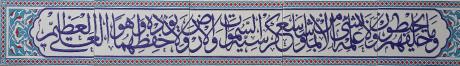 وما خلفهم ولا يحيطون بشيء من علمه إلا بما شاء وسع كرسيه السموات والأرض ولا يؤده حفظهما وهو العلي العظيم